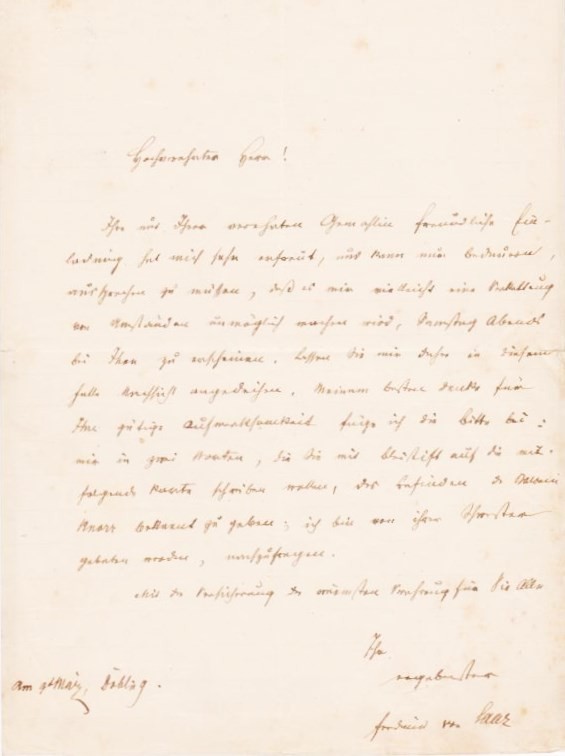 Hochverehrter Herr!
Ihre und Ihrer verehrten Gemahlin freundliche Ein-
ladung hat mich sehr erfreut, und kann nur bedauern,
aussprechen zu müssen, daß es mir vielleicht eine Verkettung
von Umständen unmöglich machen wird, Samstag Abends
bei Ihnen zu erscheinen. Lassen Sie mir daher in diesem
Falle Nachsicht angedeihen. Meinem besten Danke für
Ihre gütige Aufmerksamkeit füge ich die Bitte bei:
mir in zwei Worten, die Sie mit Bleistift auf die mit-
folgende Karte schreiben wollen, das Befinden der
Knorr bekannt zu geben; ich bin von ihrer Schwester
gebeten worden, nachzufragen.
Mit der Versicherung der wärmsten Verehrung für Sie Alle
Ihr
ergebenster
Ferdinand von Saar
Am 9t März, Döbling.